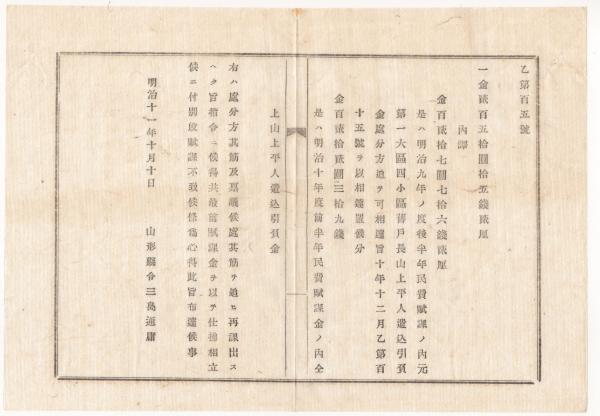 乙第百五號
一金貳百五拾圓拾五錢貳厘
內譯
金百貳拾七圓七拾六錢貳厘
是ハ明治九年ノ度後半年民費賦課ノ內元
第一六區四小區舊戶長山上平人遣込引負
金處分方追テ可相達旨十年十二月乙第百
十五號ヲ以相達置候分
金百貳拾貳圓三拾九錢
是ハ明治十年度前半年民費賦課金ノ內仝
上山上平人遣込引負金
右ハ處分方其筋及稟議候處其筋ヲ追ヒ再課出ス
ヘク旨指令ニ候得共最前賦課金ヲ以テ仕拂相立
候ニ付別段賦課不致候條爲心得此旨布達候事
明治十一年十月十日
山形縣令三島通庸